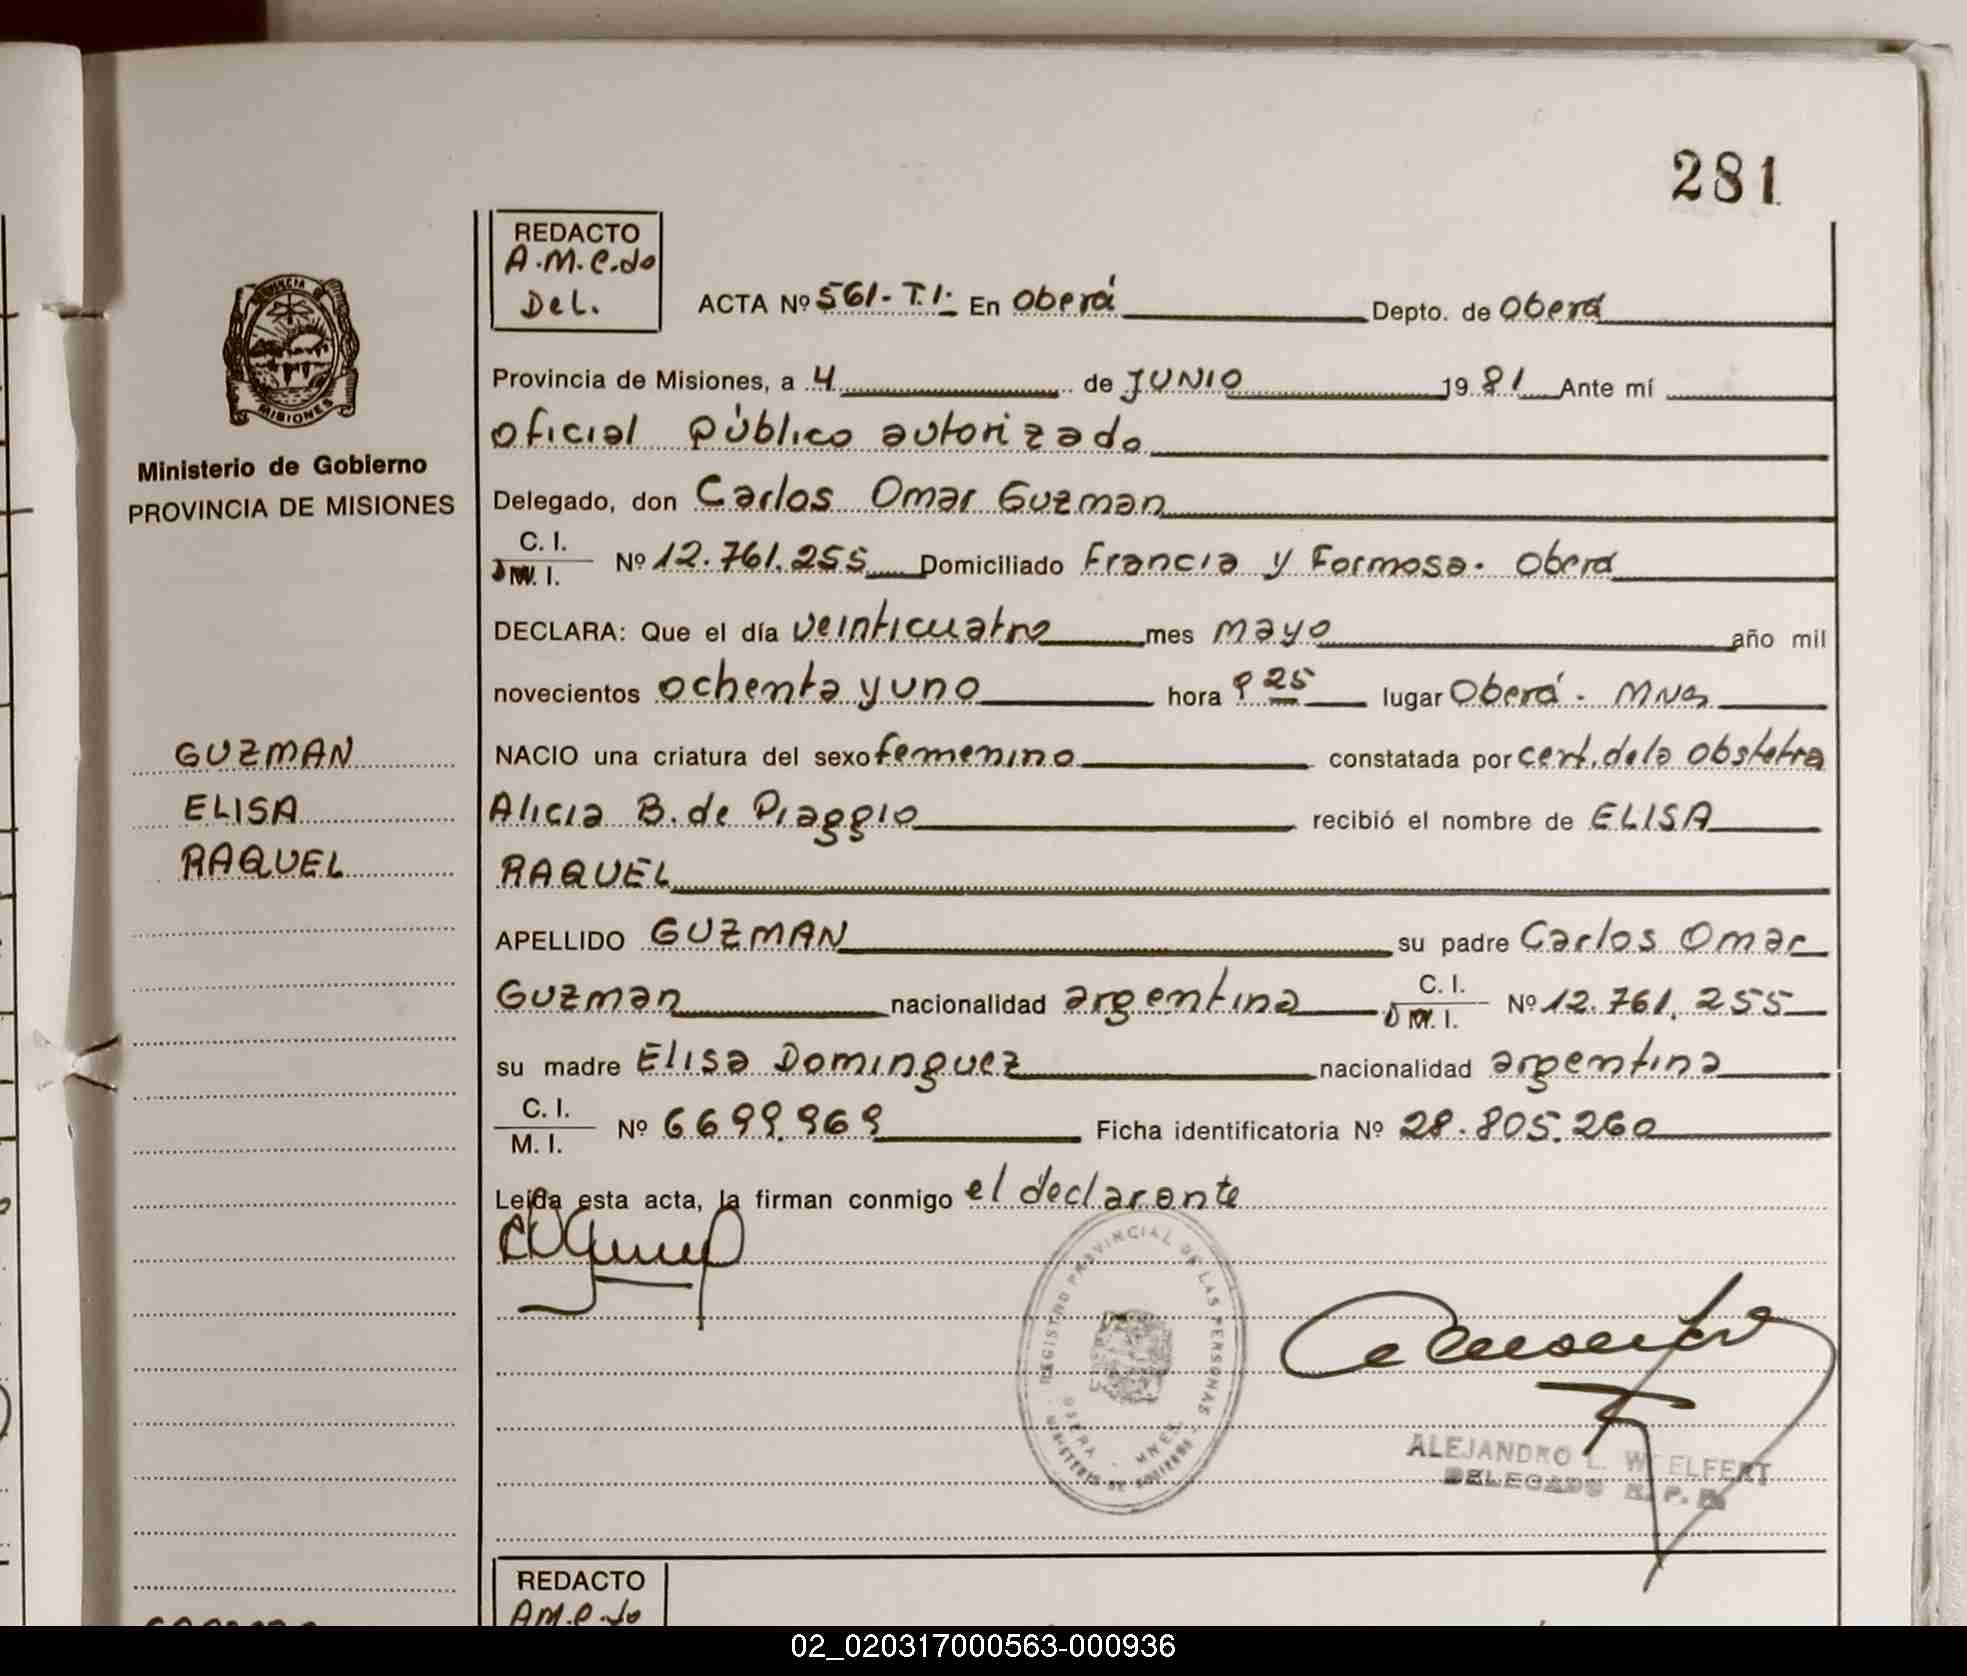 281
REDACTO
A.M.C.do
Del.
ACTA Nº 561-T.I. En Oberá Depto. de Oberá
Provincia de Misiones, a 4 de JUNIO 1981 Ante mí
oficial público autorizado
Delegado, don Carlos Omar Guzman
C. I.
D.N.I. Nº 12.761.255 Domiciliado Francia y Formosa. Oberá
DECLARA: Que el día veinticuatro mes mayo año mil
novecientos ochenta y uno hora 9 25 lugar Oberá. Mnes
NACIO una criatura del sexo femenino constatada por cert. de la Obstetra
Alicia B. de Piaggio recibió el nombre de ELISA
RAQUEL
APELLIDO GUZMAN su padre Carlos Omar
Guzman nacionalidad argentina C. I.
D.N.I. Nº 12.761.255
su madre Elisa Dominguez nacionalidad argentina
C. I.
M. I. Nº 6699.969 Ficha identificatoria Nº 28.805.260
Leída esta acta, la firman conmigo el declarante
REGISTRO PROVINCIAL DE LAS PERSONAS
OBERA - MNES.
MINISTERIO DE GOBIERNO
ALEJANDRO L. WELFERT
DELEGADO R. P. P.
PROVINCIA DE
MISIONES
Ministerio de Gobierno
PROVINCIA DE MISIONES
GUZMAN
ELISA
RAQUEL
REDACTO
A.M.C.do
02_020317000563-000936